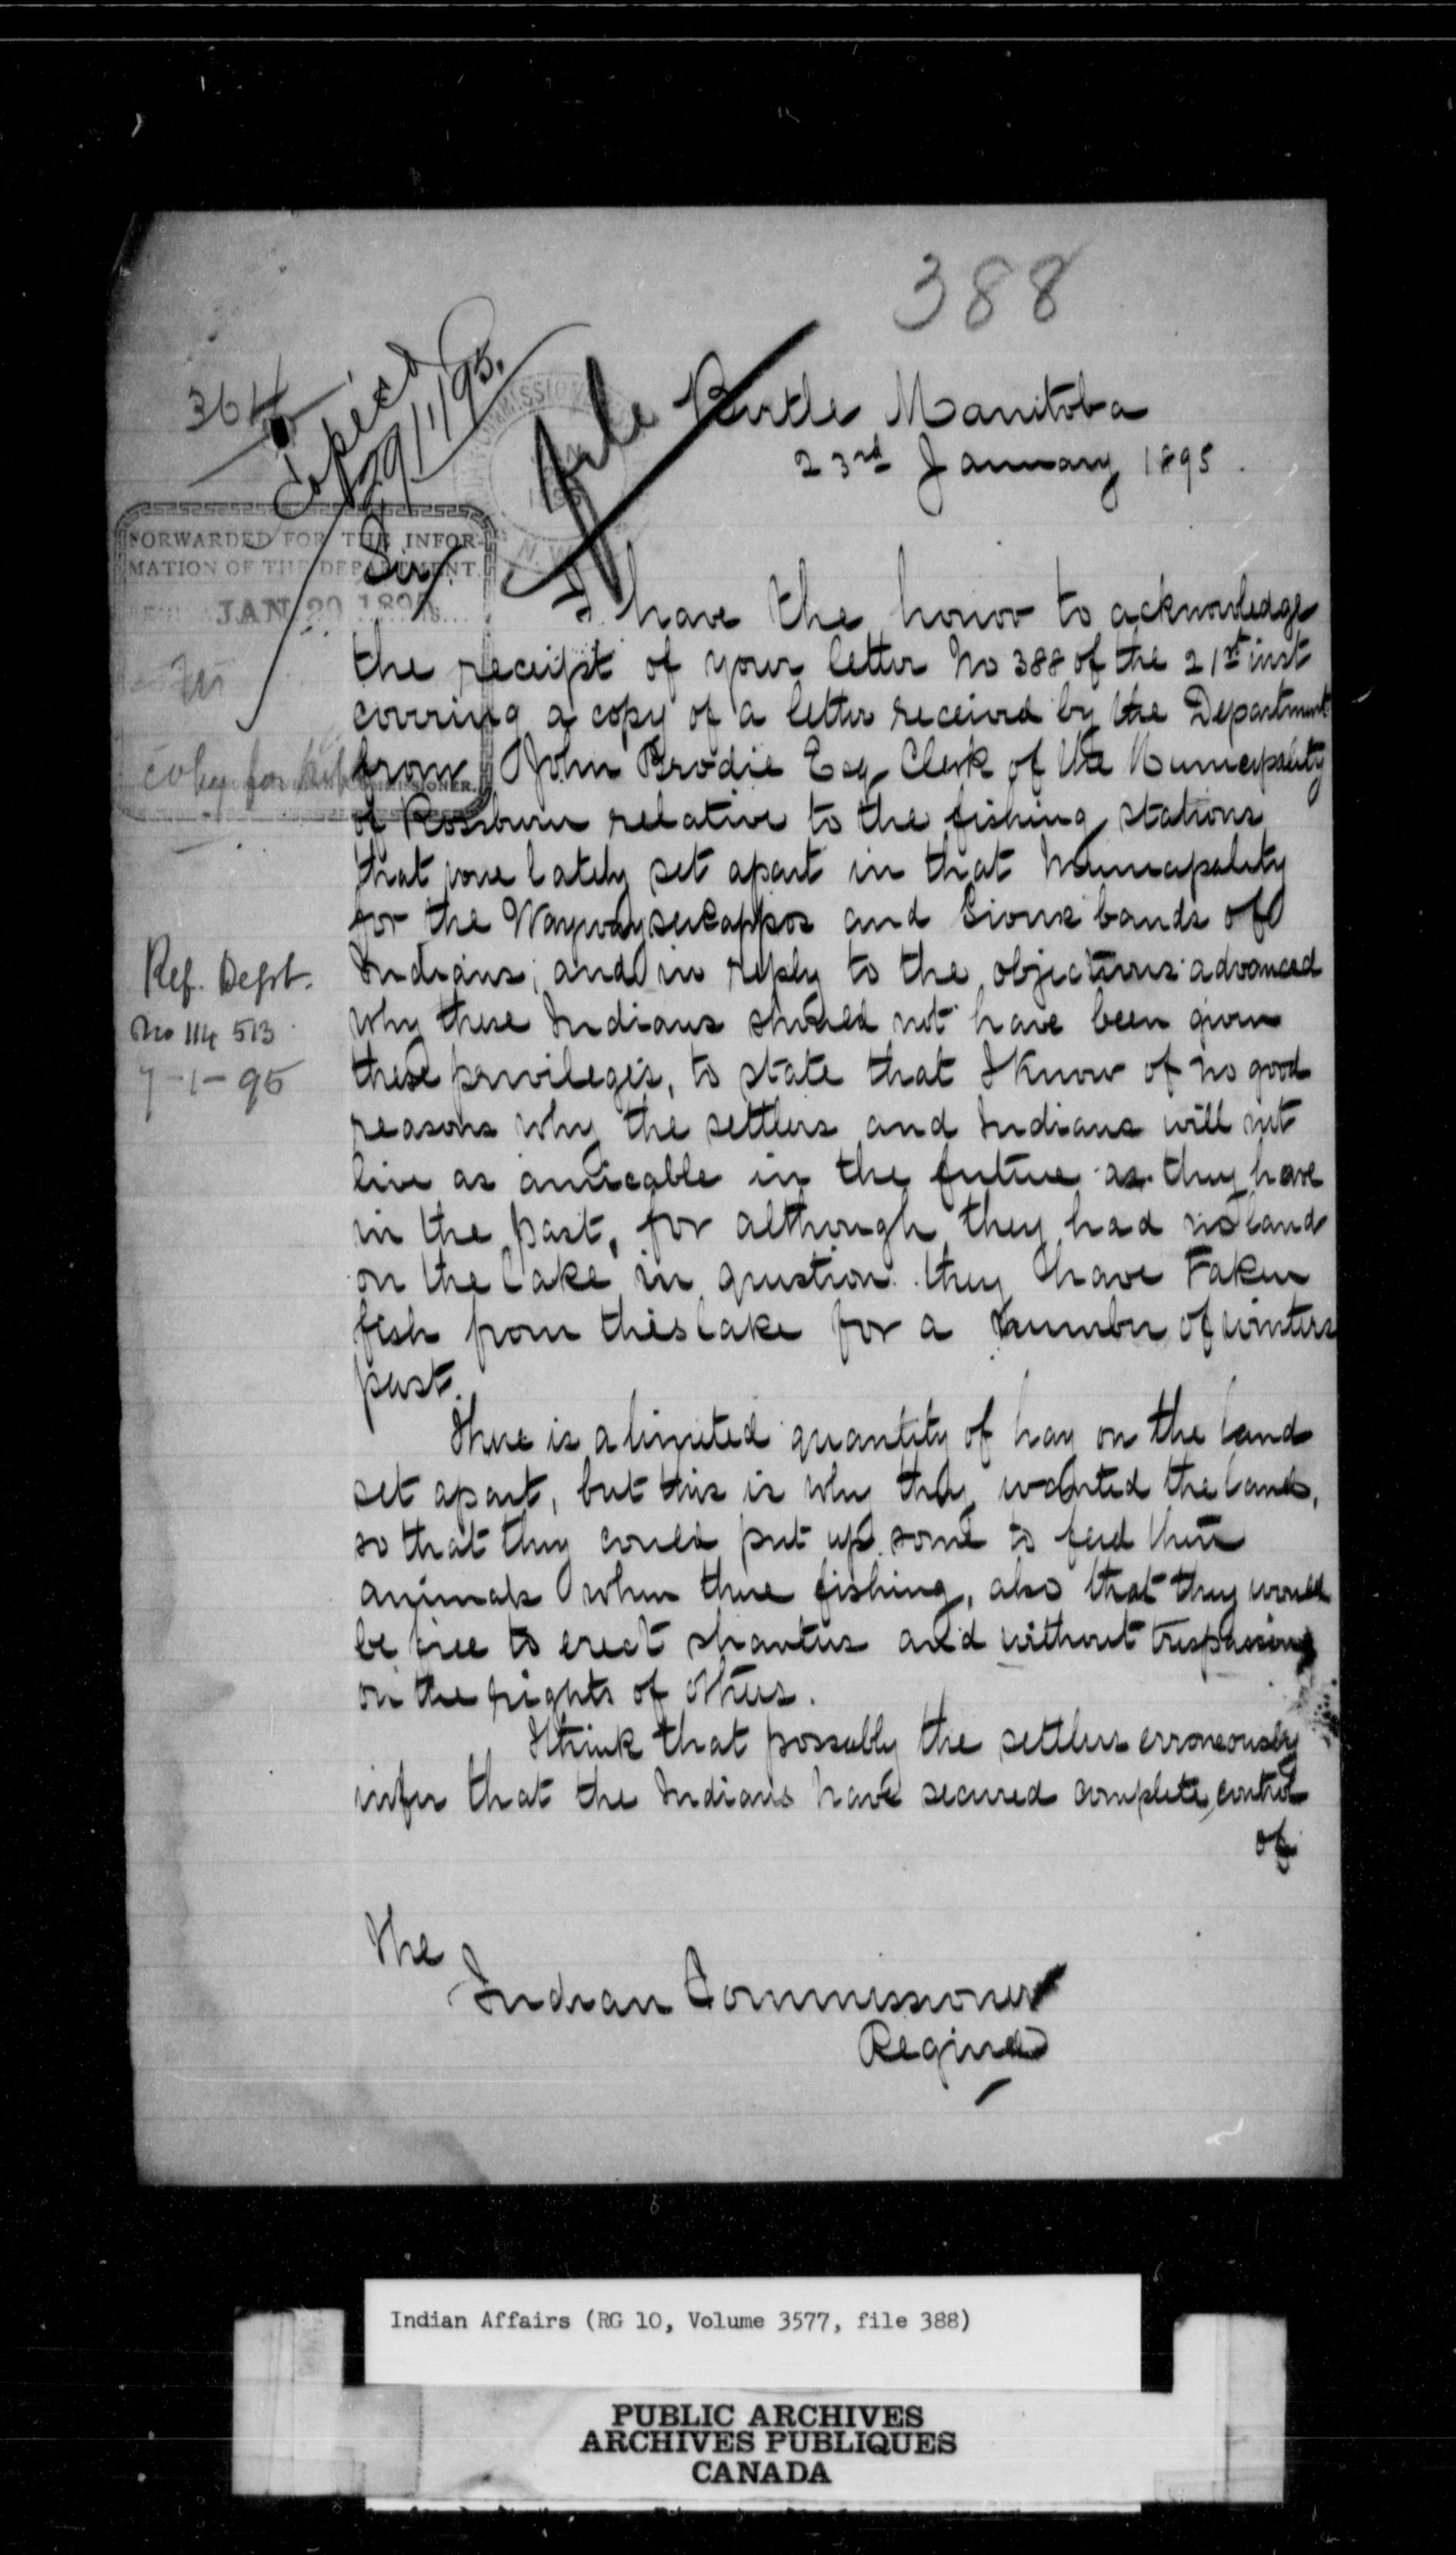 388
364
Copied
29/1/95.
File
Birtle Manitoba
23rd January 1895.
FORWARDED FOR THE INFOR-
MATION OF THE DEPARTMENT.
JAN 29 1895
COMMISSIONER.
copy for
Ref. Dept.
No 114 513
7-1-95
Sir,
I have the honor to acknowledge
the receipt of your letter No 388 of the 21st inst
covering a copy of a letter received by the Department
from John Brodie Esq Clerk of the Municipality
of Rossburn relative to the fishing stations
that were lately set apart in that Municapality
for the Waywayseecappos and Sioux bands of
Indians; and in reply to the objections advanced
why these Indians should not have been given
these privileges, to state that I know of no good
reasons why the settlers and Indians will not
live as amicable in the future as they have
in the past, for although they had no land
on the lake in question they have taken
fish from this lake for a number of winters
past.
There is a limited quantity of hay on the land
set apart, but this is why they wanted the land,
so that they could put up some to feed their
animals when there fishing, also that they would
be free to erect shanties and without trespassing
on the rights of others.
I think that possably the settlers erroneously
infer that the Indians have secured complete control
of
The
Indian Commissioner
Regina
Indian Affairs (RG 10, Volume 3577, file 388)
PUBLIC ARCHIVES
ARCHIVES PUBLIQUES
CANADA